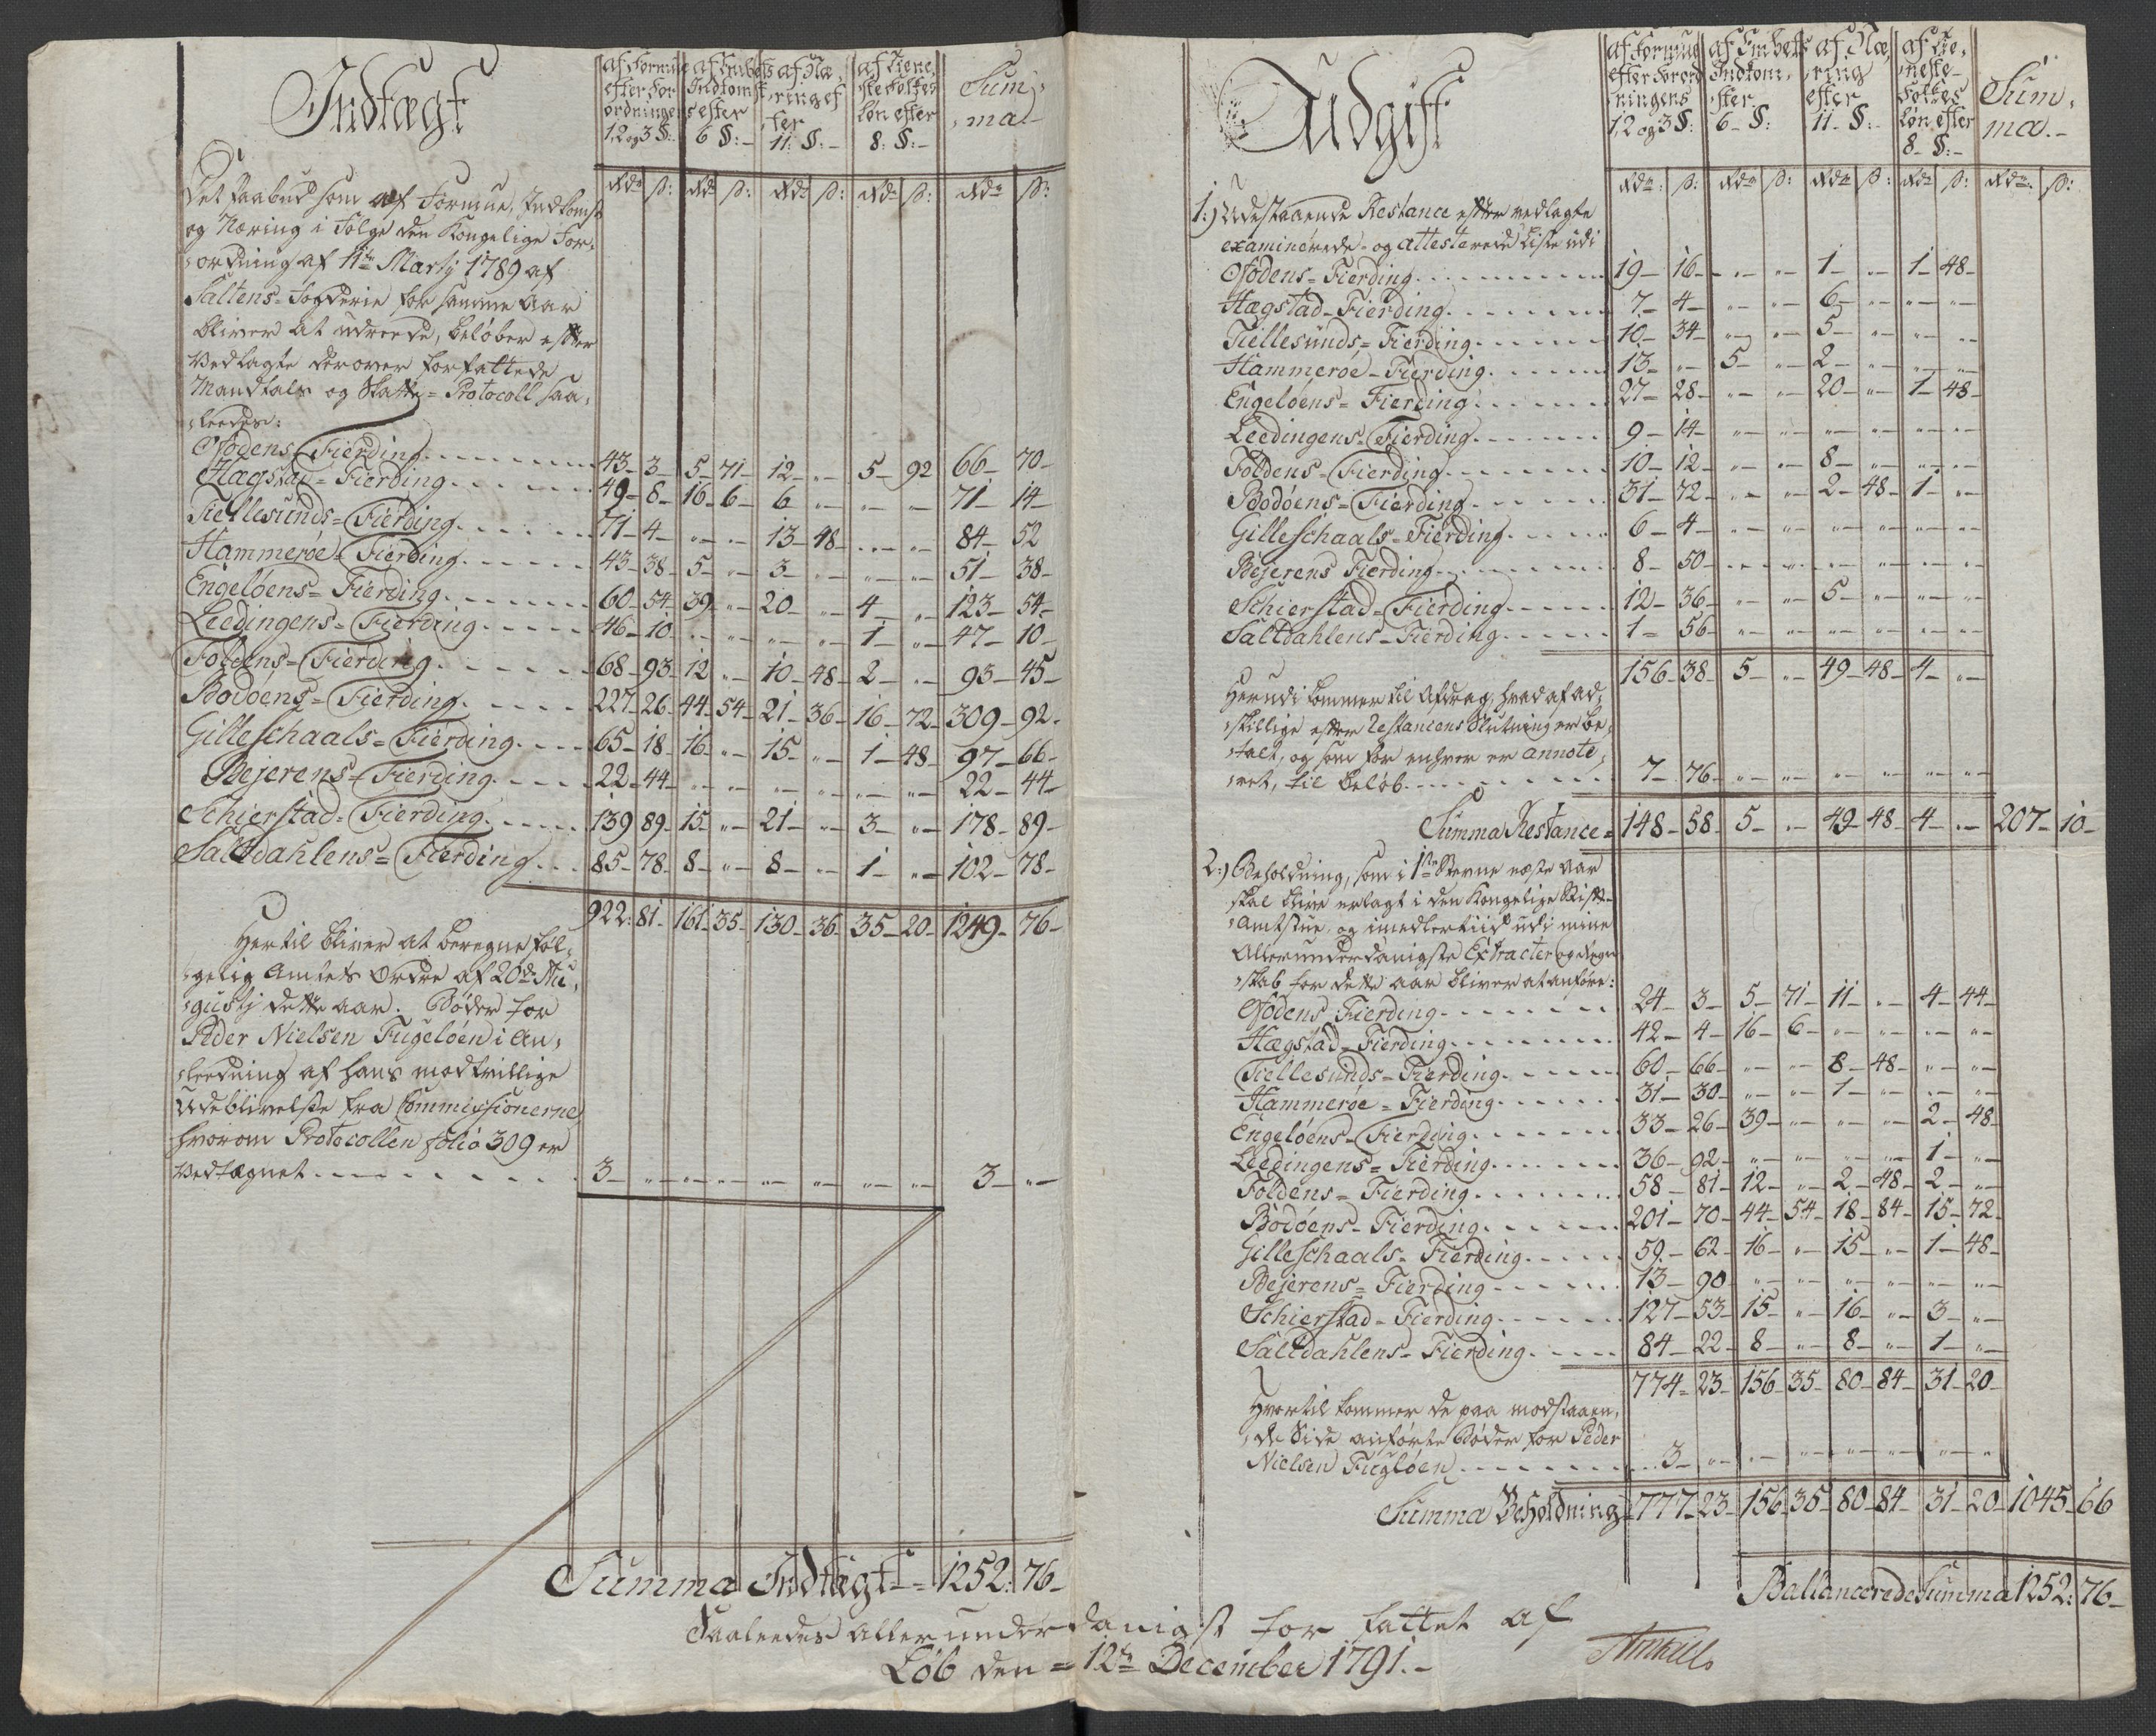 Indtægt
af Formue efter For ordningens 1. 2 og 3 §: | af Embeds Indkomst efter 6 §:- | af Næ ring ef ter 11. §:- | af Tiene ste Folkes Løn efter 8: §:- | Sum ma.
Rdr | s: | Rdr | s: | Rdr | s: | Rdr | s: | Rdr | s:
Det Paabud som af Formue, Indkomst
og Næring i Følge den Kongelige For,
ordning af 11te Martij 1789 af
Saltens Fogderie for samme Aar
bliver at udreede, beløber efter
vedlagte derover forfattede
Mandtals og Skatte=Protocoll saa,
leedes:
Ofodens Fierding 43 3 5 71 12 " 5 92 66 70
Hægstad=Fierding 49 8 16 6 6 " " " 71 14
Tiellesunds=Fierding 71 4 " " 13 48 " " 84 52
Hammerøe=Fierding 43 38 5 " 3 " " " 51 38
Engeløens=Fierding 60 54 39 " 20 " 4 " 123 54
Leedingens=Fierding 46 10 " " " " 1 " 47 10
Foldens=Fierding 68 93 12 " 10 48 2 " 93 45
Bodøens=Fierding 227 26 44 54 21 36 16 72 309 92
Gilleschaals=Fierding 65 18 16 " 15 " 1 48 97 66
Bejerens=Fierding 22 44 " " " " " " 22 44
Schierstad=Fierding 139 89 15 " 21 " 3 " 178 89
Saltdahlens=Fierding 85 78 8 " 8 " 1 " 102 78
922: 81 161 35 130 36 35 20 1249 76
Hertil bliver at beregne føl,
gelig Amtets Ordre af 20de Au,
gustj dette Aar. Bøder for
Peder Nielsen Fugeløen i An,
leedning af hans modtvillige
Udeblivelse fra Commissionerne,
hvorom Protocollen folio 309 er
vedtegnet 3 " " " " " " " 3 "
Summa Indtægt = 1252: 76
Udgift
af Formue efter Forord ningens 1. 2 og 3 §: | af Embeds Indkom, ster 6 §: | af Næ, ring efter 11. §:- | af Tie, neste Folkes Løn efter 8 §:- | Sum, ma.-
Rdr: | s: | Rdr | s: | Rdr | s: | Rdr | s: | Rdr: | s:
1:) Udestaaende Restance efter vedlagte
examinerede og attesterede Liste udi
Ofodens=Fierding 19 16 " " 1 " 1 48
Hægstad=Fierding 7 4 " " 6 " " "
Tiellesunds=Fierding 10 34 " " 5 " " "
Hammerøe=Fierding 13 " 5 " 2 " " "
Engeløens=Fierding 27 28 " " 20 " 1 48
Leedingens=Fierding 9 14 " " " " " "
Foldens=Fierding 10 12 " " 8 " " "
Bodøens=Fierding 31 72 " " 2 48 1 "
Gilleschaals=Fierding 6 4 " " " " " "
Bejerens Fierding 8 50 " " " " " "
Schierstad=Fierding 12 36 " " 5 " " "
Saltdahlens=Fierding 1 56 " " " " " "
156 38 5 " 49 48 4 "
Herudi kommer til Afdrag, hvad af ad,
skillige efter Restancens Slutning er be,
talt, og som for enhver er annote,
ret, til Beløb 7 76 " " " " " "
Summa Restance = 148 58 5 " 49 48 4 " 207 10
2:) Beholdning, som i 1ste Termine næste Aar
skal blive erlagt i den Kongelige Stift
Amtstue, og imedlertiid udi mine
Allerunderdanigste Extracter og Regn
skab for dette Aar bliver at anføre:
Ofodens Fierding 24 3 5 71 11 " 4 44
Hægstad=Fierding 42 4 16 6 " " " "
Tiellesunds=Fierding 60 66 " " 8 48 " "
Hammerøe=Fierding 31 30 " " 1 " " "
Engeløens=Fierding 33 26 39 " " " 2 48
Leedingens=Fierding 36 92 " " " " 1 "
Foldens=Fierding 58 81 12 " 2 48 2 "
Bodøens=Fierding 201 70 44 54 18 84 15 72
Gilleschaals=Fierding 59 62 16 " 15 " 1 48
Bejerens=Fierding 13 90 " " " " " "
Schierstad=Fierding 127 53 15 " 16 " 3 "
Saltdahlens=Fierding 84 22 8 " 8 " 1 "
774 23 156 35 80 84 31 20
Hvortil kommer de paa modstaaen,
de Side anførte Bøder for Peder
Nielsen Fugløen 3 " " " " " " "
Summa Beholdning 777 23 156 35 80 84 31 20 1045 66
Ballancerede Summa 1252: 76
Saaleedes allerunderdanigst forfattet af
Løb den = 12te December 1791.-